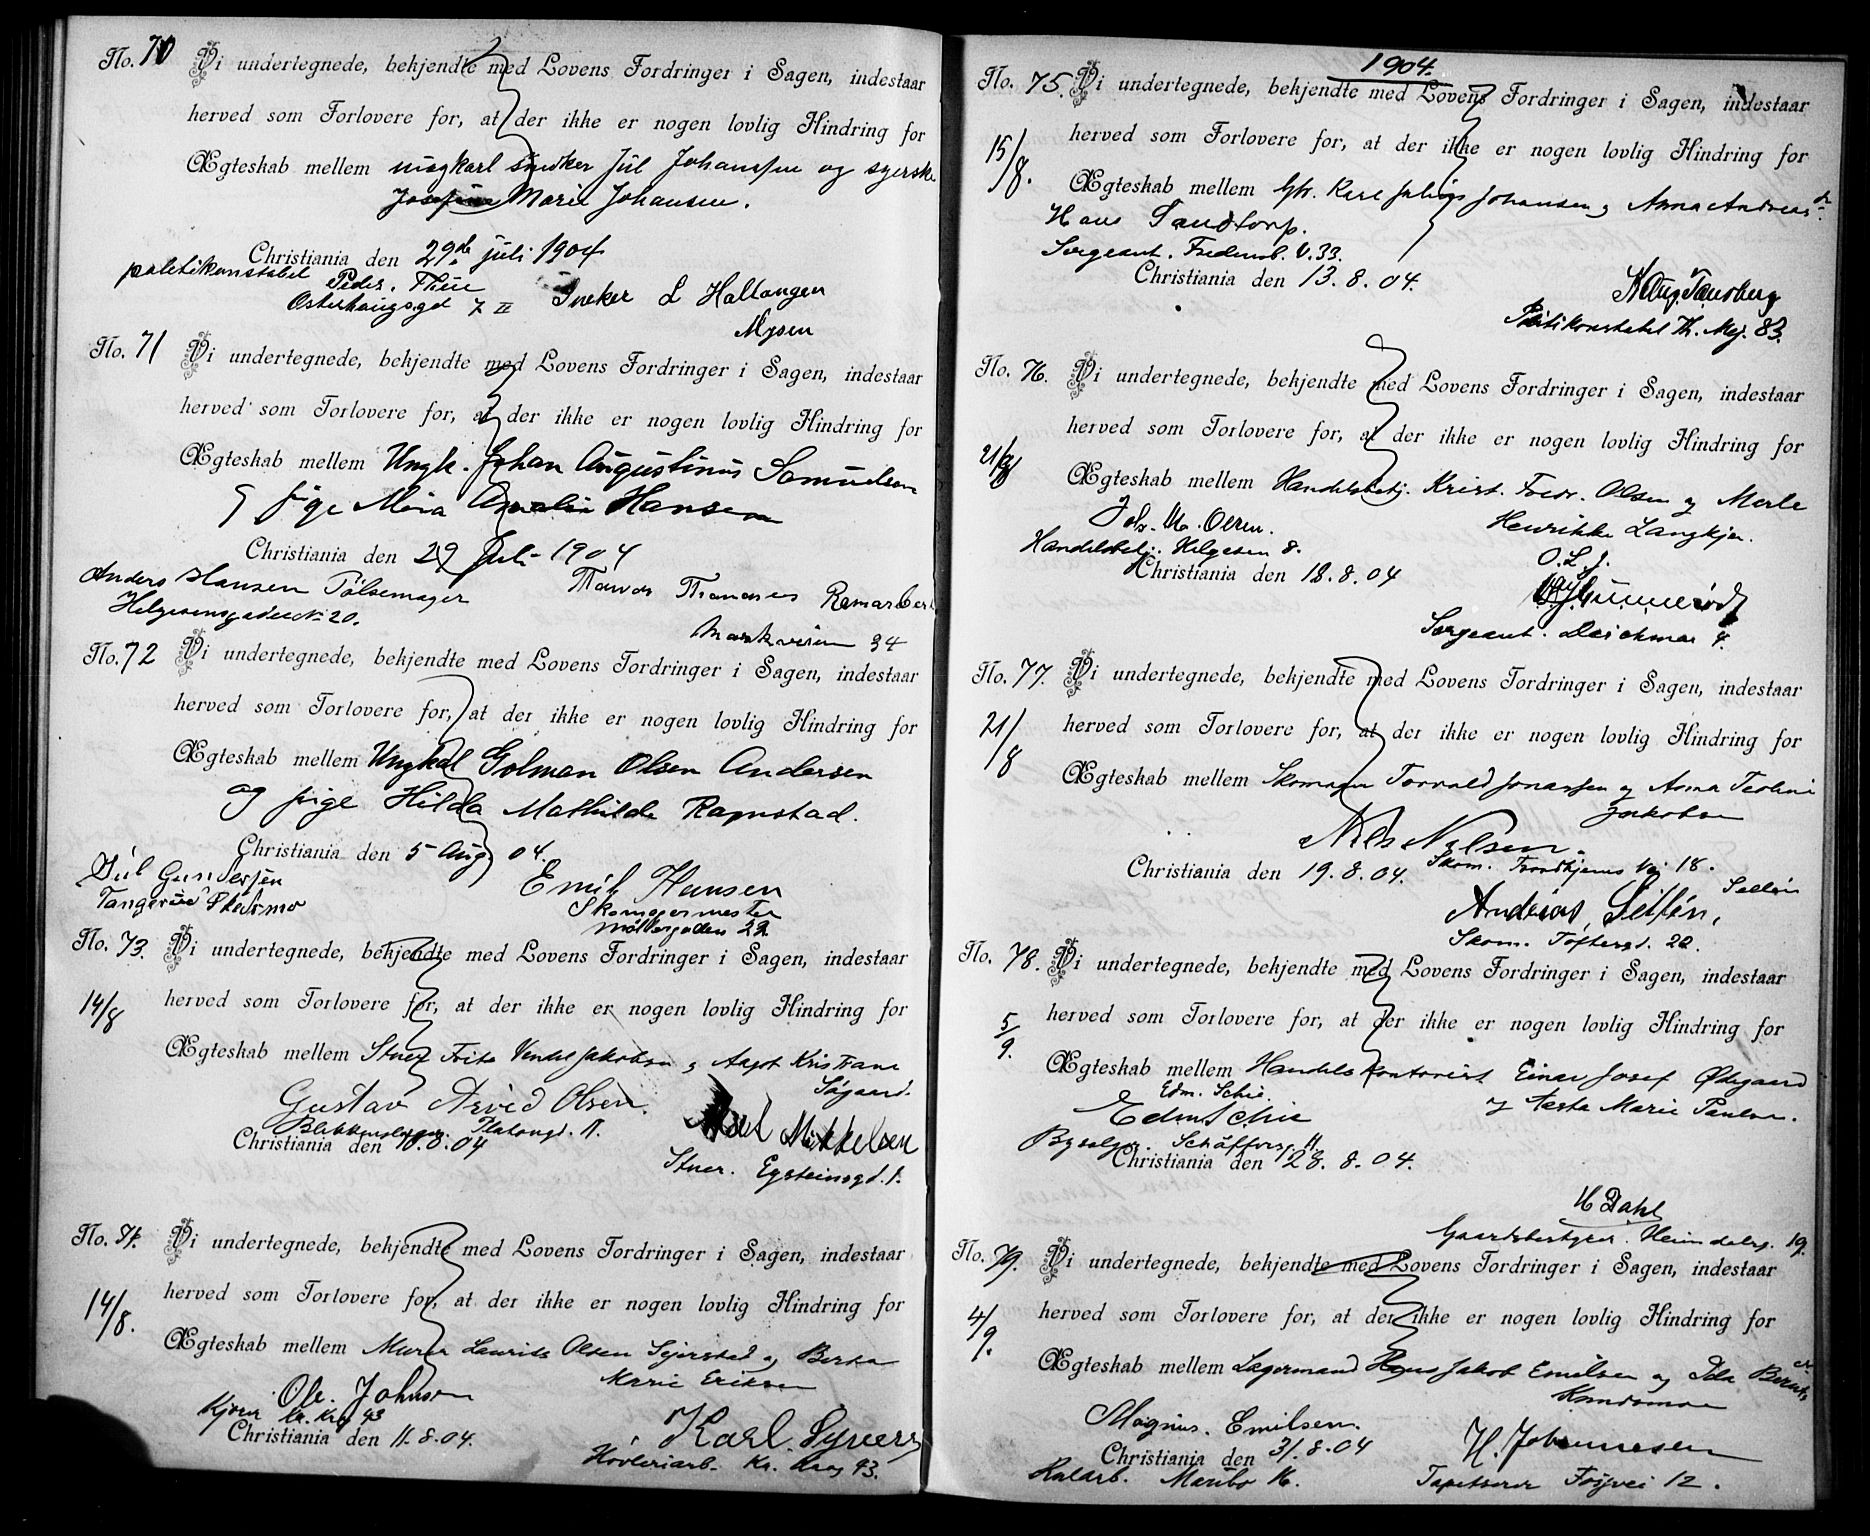 No. 70 Vi undertegnede, bekjendte med Lovens Fordringer i Sagen, indestaar
herved som Forlovere for, at der ikke er nogen lovlig Hindring for
Ægteskab mellem ungkarl snedker Jul Johanssen og syerske
Josefine Marie Johansen.
Christiania den 29de juli 1904
politikonstabel
Peder.
Osterhausgd 7 II
L Haltangen
Mysen
No. 71 Vi undertegnede, bekjendte med Lovens Fordringer i Sagen, indestaar
herved som Forlovere for, at der ikke er nogen lovlig Hindring for
Ægteskab mellem Ungk. Johan Augustinus Samuelsen
og pige Mina Amalie Hansen
Christiania den 29 Juli 1904
Anders Hansen Pölsemager
Helgesensgaden N. 20.
Markveien 34
No. 72 Vi undertegnede, bekjendte med Lovens Fordringer i Sagen, indestaar
herved som Forlovere for, at der ikke er nogen lovlig Hindring for
Ægteskab mellem Ungkal Golman Olsen Andersen
og pige Hilda Mathilde Ramstad.
Christiania den 5 Aug 04.
Jul Gundersen
Emil Hansen
Skomagermester
Möllergaden 22
No. 73. Vi undertegnede, bekjendte med Lovens Fordringer i Sagen, indestaar
14/8 herved som Forlovere for, at der ikke er nogen lovlig Hindring for
Ægteskab mellem Stuer Frits Vendel Jakobsen og Aagot Kristiane
Søgaard.
Gustav Arvid Olsen.
Blikkenslager Platousgd. 11.
Christiania den 10.8.04
Axel Mikkelsen
Stuer. Eysteinsgd. 1.
No. 74. Vi undertegnede, bekjendte med Lovens Fordringer i Sagen, indestaar
14/8. herved som Forlovere for, at der ikke er nogen lovlig Hindring for
Ægteskab mellem Murer Laurits Olsen Sejerstad og Berta
Marie Eriksen
Ole. Johnsen
Kjører Kr. Krog 43
Christiania den 11.8.04.
Karl. Syvers
Høvleriarb. Kr. Krog 43.
1904.
No. 75. Vi undertegnede, bekjendte med Lovens Fordringer i Sagen, indestaar
15/8. herved som Forlovere for, at der ikke er nogen lovlig Hindring for
Ægteskab mellem Karl Julius Johansen og Anna Andreasdr.
Hans Sandtorp.
Sergeant. Fredensb. V. 33.
Christiania den 13.8.04.
Aug. Tønsberg
Politikonstabel Th. Mej. 83.
No. 76. Vi undertegnede, bekjendte med Lovens Fordringer i Sagen, indestaar
21/8 herved som Forlovere for, at der ikke er nogen lovlig Hindring for
Ægteskab mellem Handelsbetj. Krist. Fredr. Olsen og Merle
Henrikke Langkjer.
Joh. M. Olsen.
Handelsbetj. Helgesen 8.
Christiania den 18.8.04
O. L. J.
Gunnerød
Sergeant. Deichman 4.
No. 77. Vi undertegnede, bekjendte med Lovens Fordringer i Sagen, indestaar
21/8 herved som Forlovere for, at der ikke er nogen lovlig Hindring for
Ægteskab mellem Skomager Torvald Jonassen og Anna Teoline
Jakobsen
Nils Nilsen.
Christiania den 19.8.04. Skom. Trondhjems Vej 18.
Sellén
Andréas, Sellén,
Skom. Toftesgd. 20.
No. 78. Vi undertegnede, bekjendte med Lovens Fordringer i Sagen, indestaar
5/9. herved som Forlovere for, at der ikke er nogen lovlig Hindring for
Ægteskab mellem Handelskontorist Einar Josef Ødegaard
og Marie Paulsen.
Edm. Schie.
Edm Schie
Schäffersg. 11.
Christiania den 28.8.04.
H Dahl
Gaardsbestyrer. Heimdalsg. 19.
No. 79. Vi undertegnede, bekjendte med Lovens Fordringer i Sagen, indestaar
4/9. herved som Forlovere for, at der ikke er nogen lovlig Hindring for
Ægteskab mellem Lagermand Hans Jakob Emilsen og Ida
Knudsmoen
Magnus. Emilsen.
Christiania den 31.8.04
Maribo 16.
H. Johannesen
Tapetserer Fossvei 12.